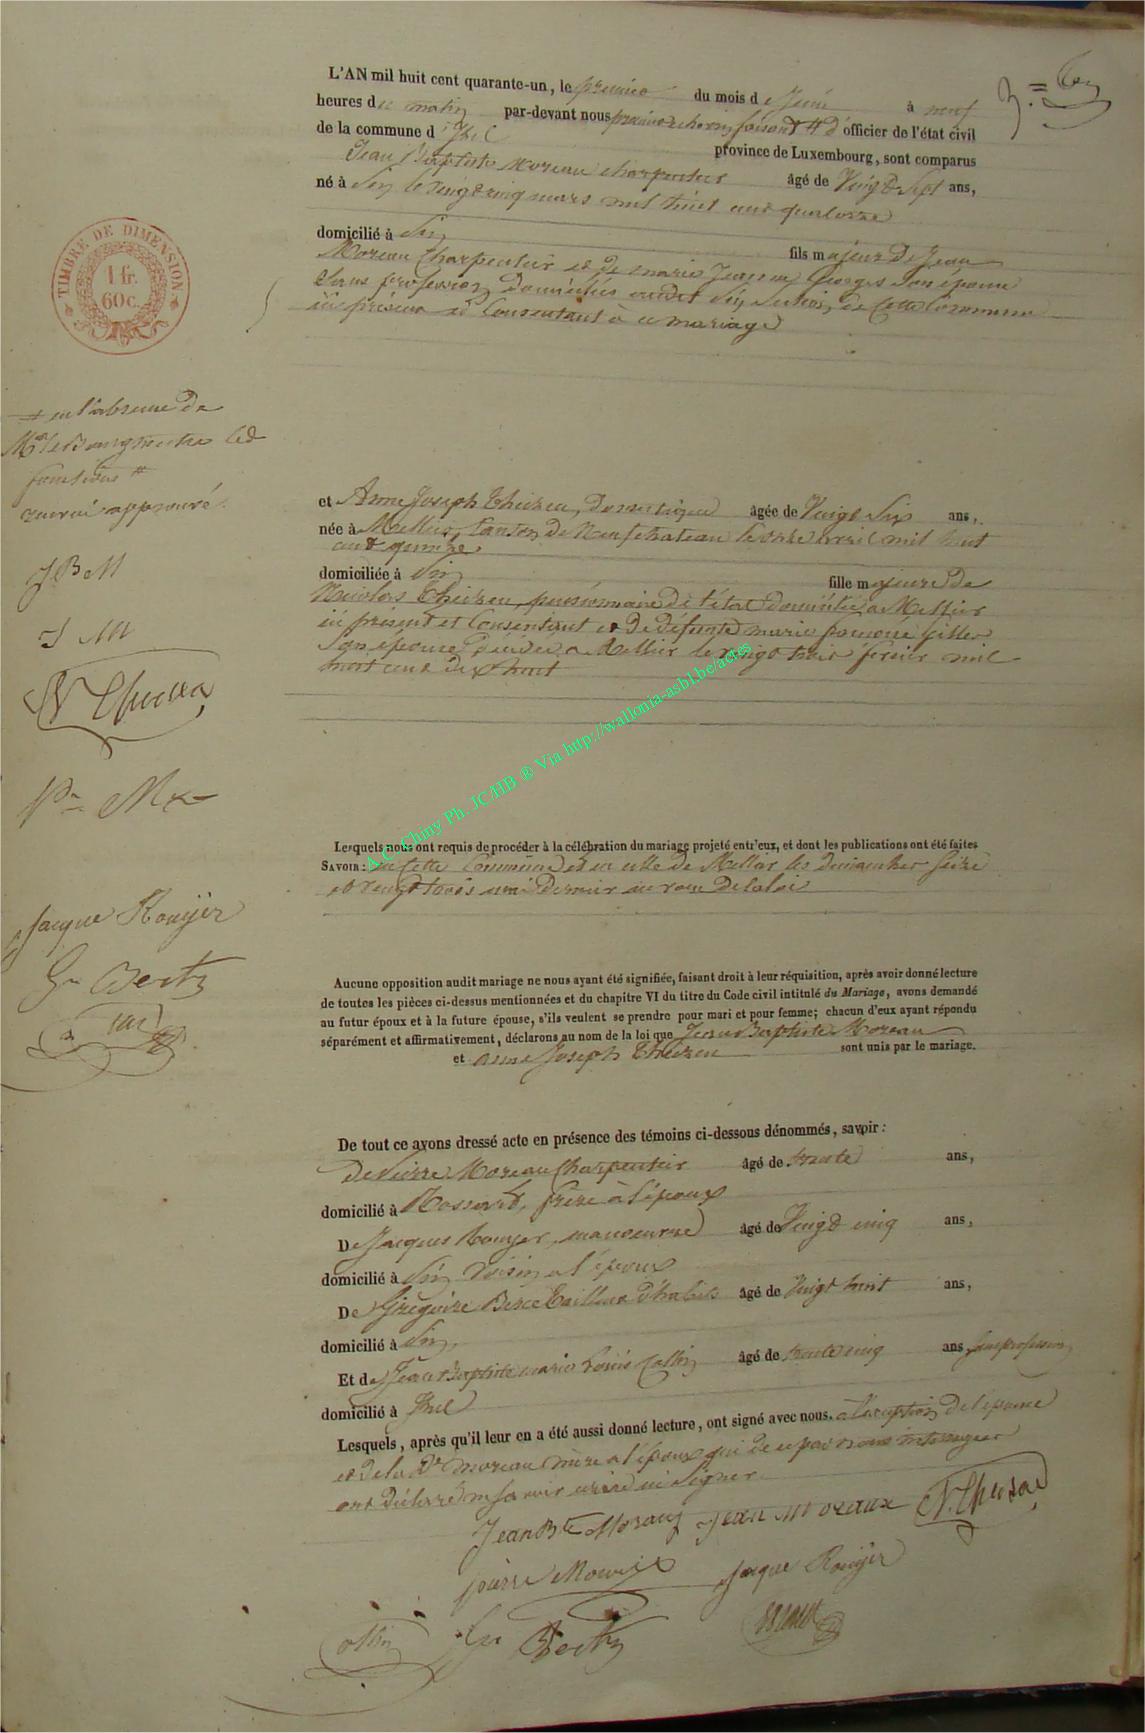 L'AN mil huit cent quarante-un, le premier du mois de Juin à neuf
heures du matin par-devant nous premier échevin faisant # d'officier de l'état civil
de la commune d'Izel province de Luxembourg, sont comparus
Jean Baptiste Moreau charpentier âgé de Vingt Sept ans,
né à Sin le vingt cinq mars mil huit cent quatorze
domicilié à Sin fils majeur de Jean
Moreau Charpentier et de marie Jeanne Georges son épouse
Sans profession domiciliés audit Sin, de Cette Commune
ici présens et Consentant à ce mariage
TIMBRE DE DIMENSION
1 fr.
60c.
# en l'absence de
Mr le Bourgmestre led
fonctions #
renvoi approuvé.
J B M
J M
N Theizen
Pre Mx
Jacque Rouyer
Gre Bertz
et Anne Joseph Theizen, domestique âgée de Vingt Six ans,
née à Mellier, Canton de Neufchateau le onze avril mil huit
cent quinze
domiciliée à Sin fille majeure de
Nicolas Theizen, pensionnaire de l'état domicilié à Mellier
ici présent et Consentant et de défunte marie
Son épouse décédée a Mellier le vingt trois février mil
huit cent dix huit
Lesquels nous ont requis de procéder à la célébration du mariage projeté entr'eux, et dont les publications ont été faites
SAVOIR: en Cette Commune et en celle de Mellier les dimanches seize
et vingt trois mai dernier au vœu de la loi
Aucune opposition audit mariage ne nous ayant été signifiée, faisant droit à leur réquisition, après avoir donné lecture
de toutes les pièces ci-dessus mentionnées et du chapitre VI du titre du Code civil intitulé du Mariage, avons demandé
au futur époux et à la future épouse, s'ils veulent se prendre pour mari et pour femme; chacun d'eux ayant répondu
séparément et affirmativement, déclarons au nom de la loi que Jean Baptiste Moreau
et anne Joseph Theizen sont unis par le mariage.
De tout ce avons dressé acte en présence des témoins ci-dessous dénommés, savoir:
de Pierre Moreau Charpentier âgé de trente ans,
domicilié à Rossart, frère à l'époux
De Jacques Rouyer, manoeuvre âgé de Vingt cinq ans,
domicilié à Sin Voisin a l'époux
De Grégoire Tailleur d'habits âgé de Vingt huit ans,
domicilié à Sin,
Et de Jean Baptiste marie Louis Collin âgé de trente cinq ans sans profession
domicilié à Izel
Lesquels, après qu'il leur en a été aussi donné lecture, ont signé avec nous. a l'exception de l'épouse
et de la de moreau mère a l'époux qui de ce par nous interrogées
ont déclaré ne savoir écrire ni signer
Jean Bte Moraux Jean Moraux N. Theizen
pierre Moraux Jacque Rouyer
Gre Bertz
A.C. Chiny Ph. JC/HB ® Via http://wallonia-asbl.be/actes